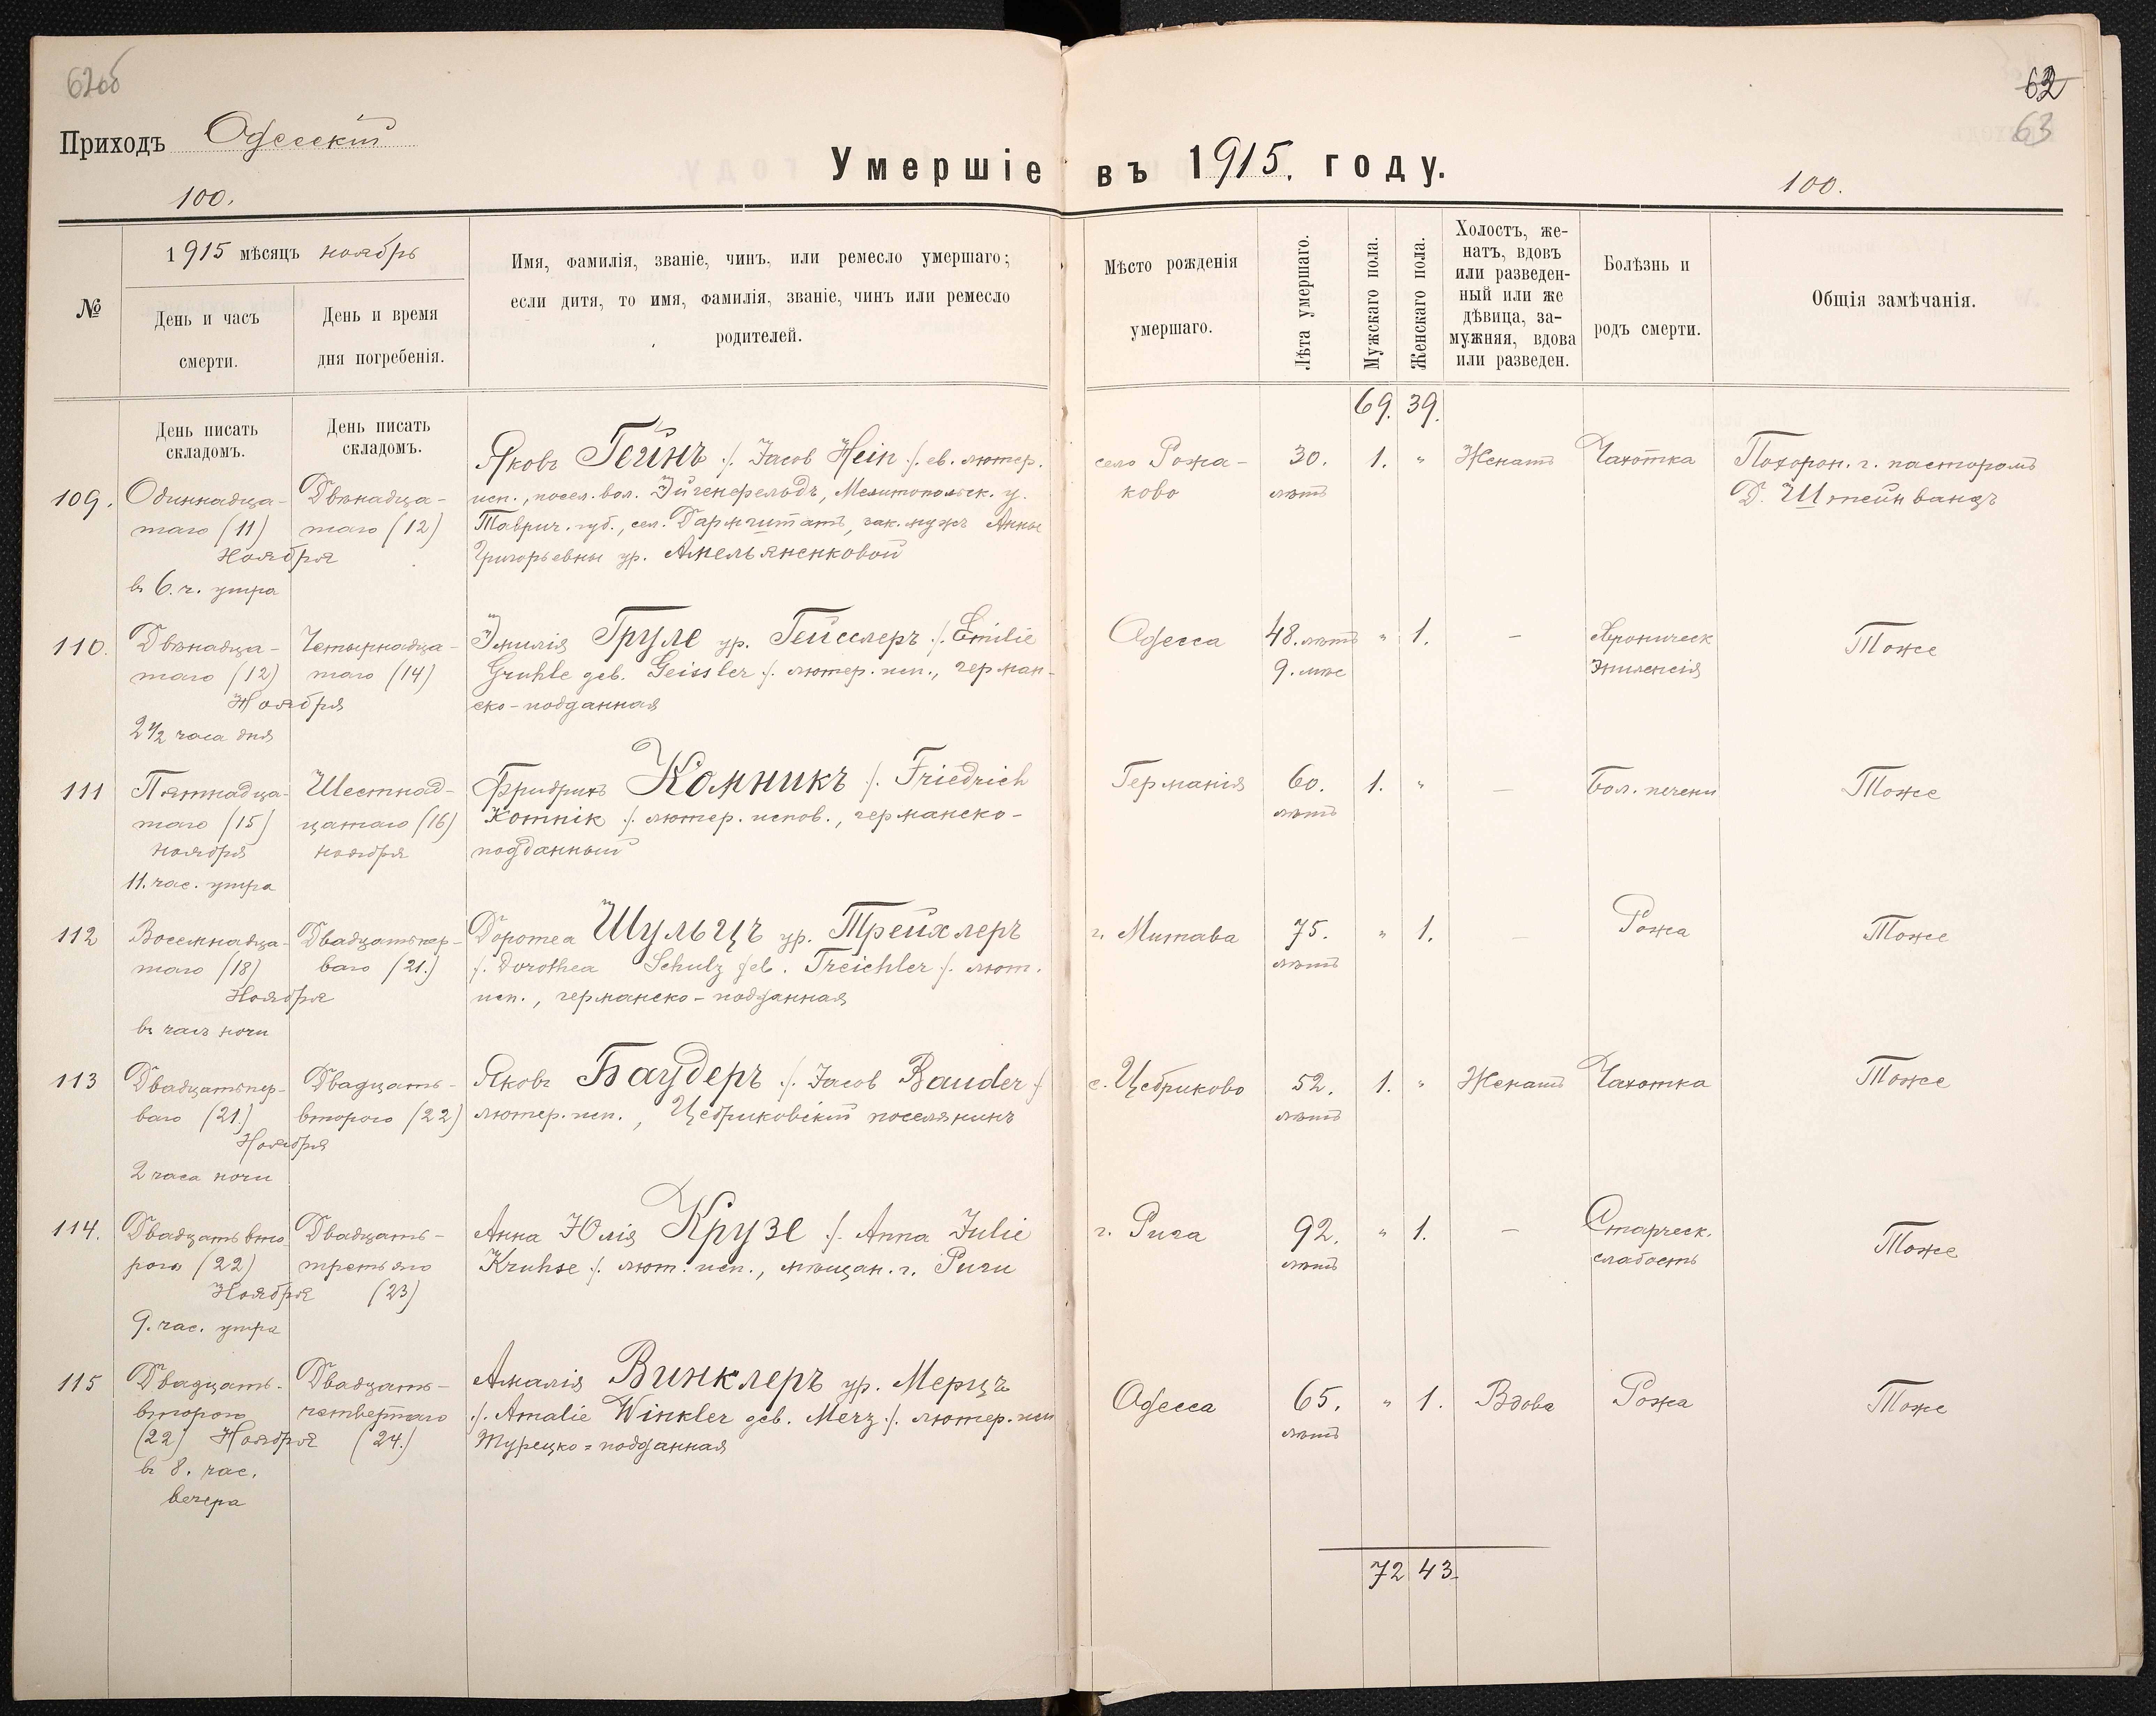 62об
62
63
Приходъ Одесскій
Умершіе въ 1915. году.
100.
100.
№
1915 мѣсяцъ ноябрь
День и часъ
смерти.
День и время
дня погребенія.
Имя, фамилія, званіе, чинъ, или ремесло умершаго;
если дитя, то имя, фамилія, званіе, чинъ или ремесло
родителей.
Мѣсто рожденія
умершаго.
Лѣта умершаго.
Мужскаго пола.
Женскаго пола.
Холостъ, же-
натъ, вдовъ
или разведен-
ный или же
дѣвица, за-
мужняя, вдова
или разведен.
Болѣзнь и
родъ смерти.
Общія замѣчанія.
День писать
складомъ.
День писать
складомъ.
69. 39.
109.
Одиннадца-
таго (11)
Ноября
въ 6. ч. утра
Двѣнадца-
таго (12)
Яковъ Гейнъ /. Jacob Hein /. ев. лютер.
исп., посел. вол. Эйгенфельдъ, Мелитопольск. у.
Таврич. губ., сел. Дармштатъ, зак. мужъ Анны
Григорьевны ур. Амельяненковой
село Рожа-
ково
30.
лѣтъ
1. "
Женатъ
Чахотка
Похорон. г. пасторомъ
Д. Штейнвандъ
110.
Двѣнадца-
таго (12)
Ноября
2 1/2 часа дня
Четырнадца-
таго (14)
Эмилія Груле ур. Гейсслеръ /. Emilie
Gruhle geb. Geissler /. лютер. исп., герман-
ско-подданная
Одесса
48. лѣтъ
9. мѣс
" 1.
—
Хроническ
Эпилепсія
Тоже
111
Пятнадца-
таго (15)
ноября
11. час. утра
Шестнад-
цатаго (16)
ноября
Фридрихъ Комникъ /. Friedrich
Komnik /. лютер. испов., германско-
подданный
Германія
60.
лѣтъ
1. "
—
Бол. печени
Тоже
112
Восемнадца-
таго (18)
Ноября
въ часъ ночи
Двадцатьпер-
ваго (21.)
Доротеа Шульцъ ур. Трейхлеръ
/. Dorothea Schulz geb. Treichler /. лют.
исп., германско-подданная
г. Митава
75.
лѣтъ
" 1.
—
Рожа
Тоже
113
Двадцатьпер-
ваго (21.)
Ноября
2 часа ночи
Двадцать-
второго (22)
Яковъ Баудеръ /. Jacob Bauder /.
лютер. исп., Цебриковскій поселянинъ
с. Цебриково
52.
лѣтъ
1. "
Женатъ
Чахотка
Тоже
114.
Двадцатьвто
рого (22)
Ноября
9. час. утра
Двадцать-
третьяго
(23)
Анна Юлія Крузе /. Anna Julie
Kruhse /. лют. исп., мѣщан. г. Риги
г. Рига
92.
лѣтъ
" 1.
—
Старческ.
слабость
Тоже
115
Двадцать-
второго
(22) Ноября
въ 8. час.
вечера
Двадцать-
четвертаго
(24.)
Амалія Винклеръ ур. Мерцъ
/. Amalie Winkler geb. Merz /. лютер. исп
Турецко=подданная
Одесса
65.
лѣтъ
" 1.
Вдова
Рожа
Тоже
72 43